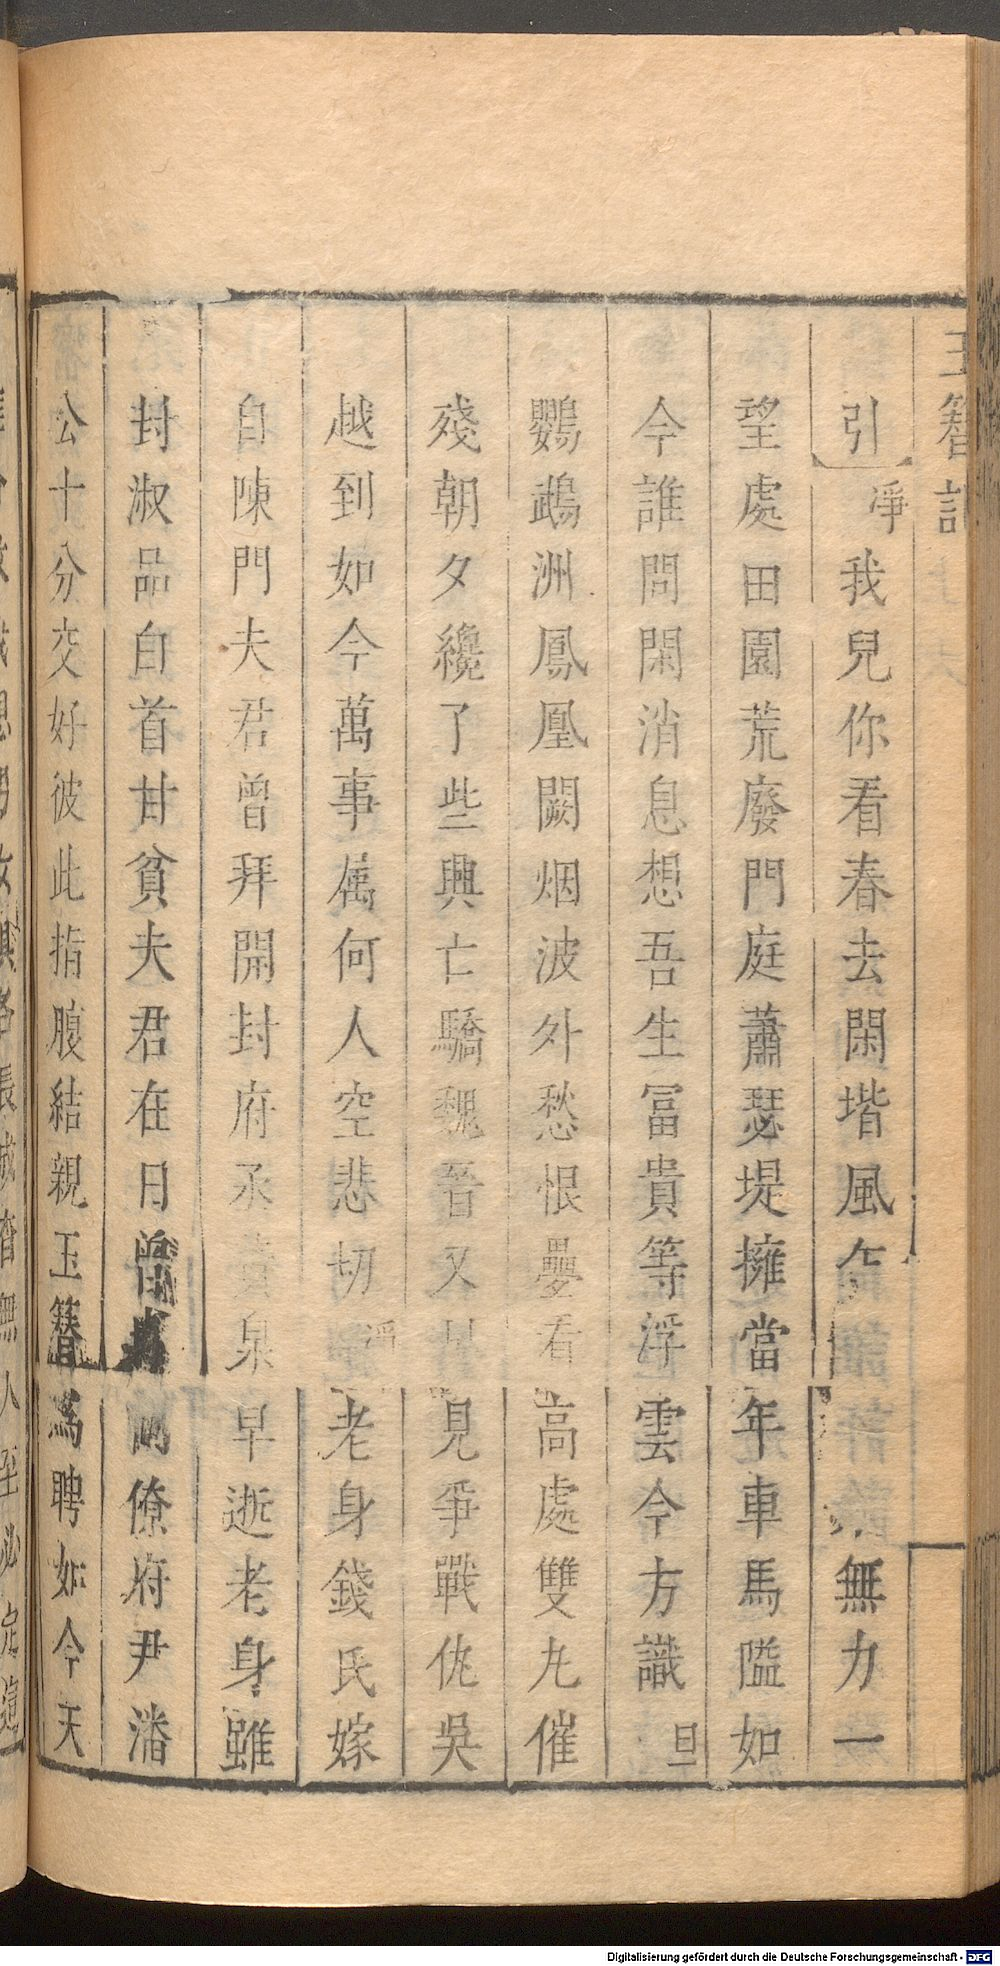 玉簪記
引 淨 我兒你看春去閑堦風 無力一
望處田園荒廢門庭蕭瑟堤擁當年車馬隘如
今誰問閑消息想吾生冨貴等浮雲今方識 旦
鸚鵡洲鳳凰闕烟波外愁恨疊看高處雙丸催
殘朝夕纔了些興亡驕魏晉又 見爭戰仇吳
越到如今萬事属何人空悲切 淨 老身錢氏嫁
自陳門夫君曾拜開封府丞 泉早逝老身雖
封淑品自首甘貧夫君在日曽 僚府尹潘
公十分交好彼此指腹結親玉簪爲聘如今天
Digitalisierung gefördert durch die Deutsche Forschungsgemeinschaft - DFG